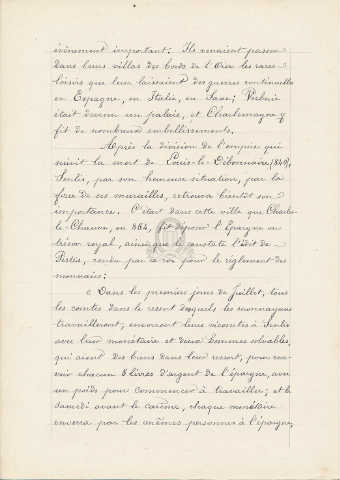 évènement important: Ils venaient passer
dans leurs villas des bords de l'Oise les rares
loisirs que leur laissaient des guerres continuelles
en Espagne, en Italie, en Saxe; Verberie
était devenu un palais, et Charlemagne y
fit de nombreux embellissements.
Après la division de l'empire qui
suivit la mort de Louis-le-Débonnaire (840),
Senlis, par son heureuse situation, par la
force de ses murailles, retrouva bientôt son
importance. C'était dans cette ville que Charles-
le-Chauve, en 864, fit déposer l'Epargne ou
trésor royal, ainsi que le constate l'édit de
Pistes, rendu par ce roi pour le règlement des
monnaies:
« Dans les premiers jours de Juillet, tous
les comtes dans le ressort desquels les monnayeurs
travailleront, enverront leurs vicomtes à Senlis
avec leur monétaire et deux hommes solvables,
qui aient des biens dans leur ressort, pour rece-
voir chacun 5 livres d'argent de l'épargne, avec
un poids pour commencer à travailler; et le
samedi avant le carême, chaque monétaire
enverra par les mêmes personnes à l'épargne,